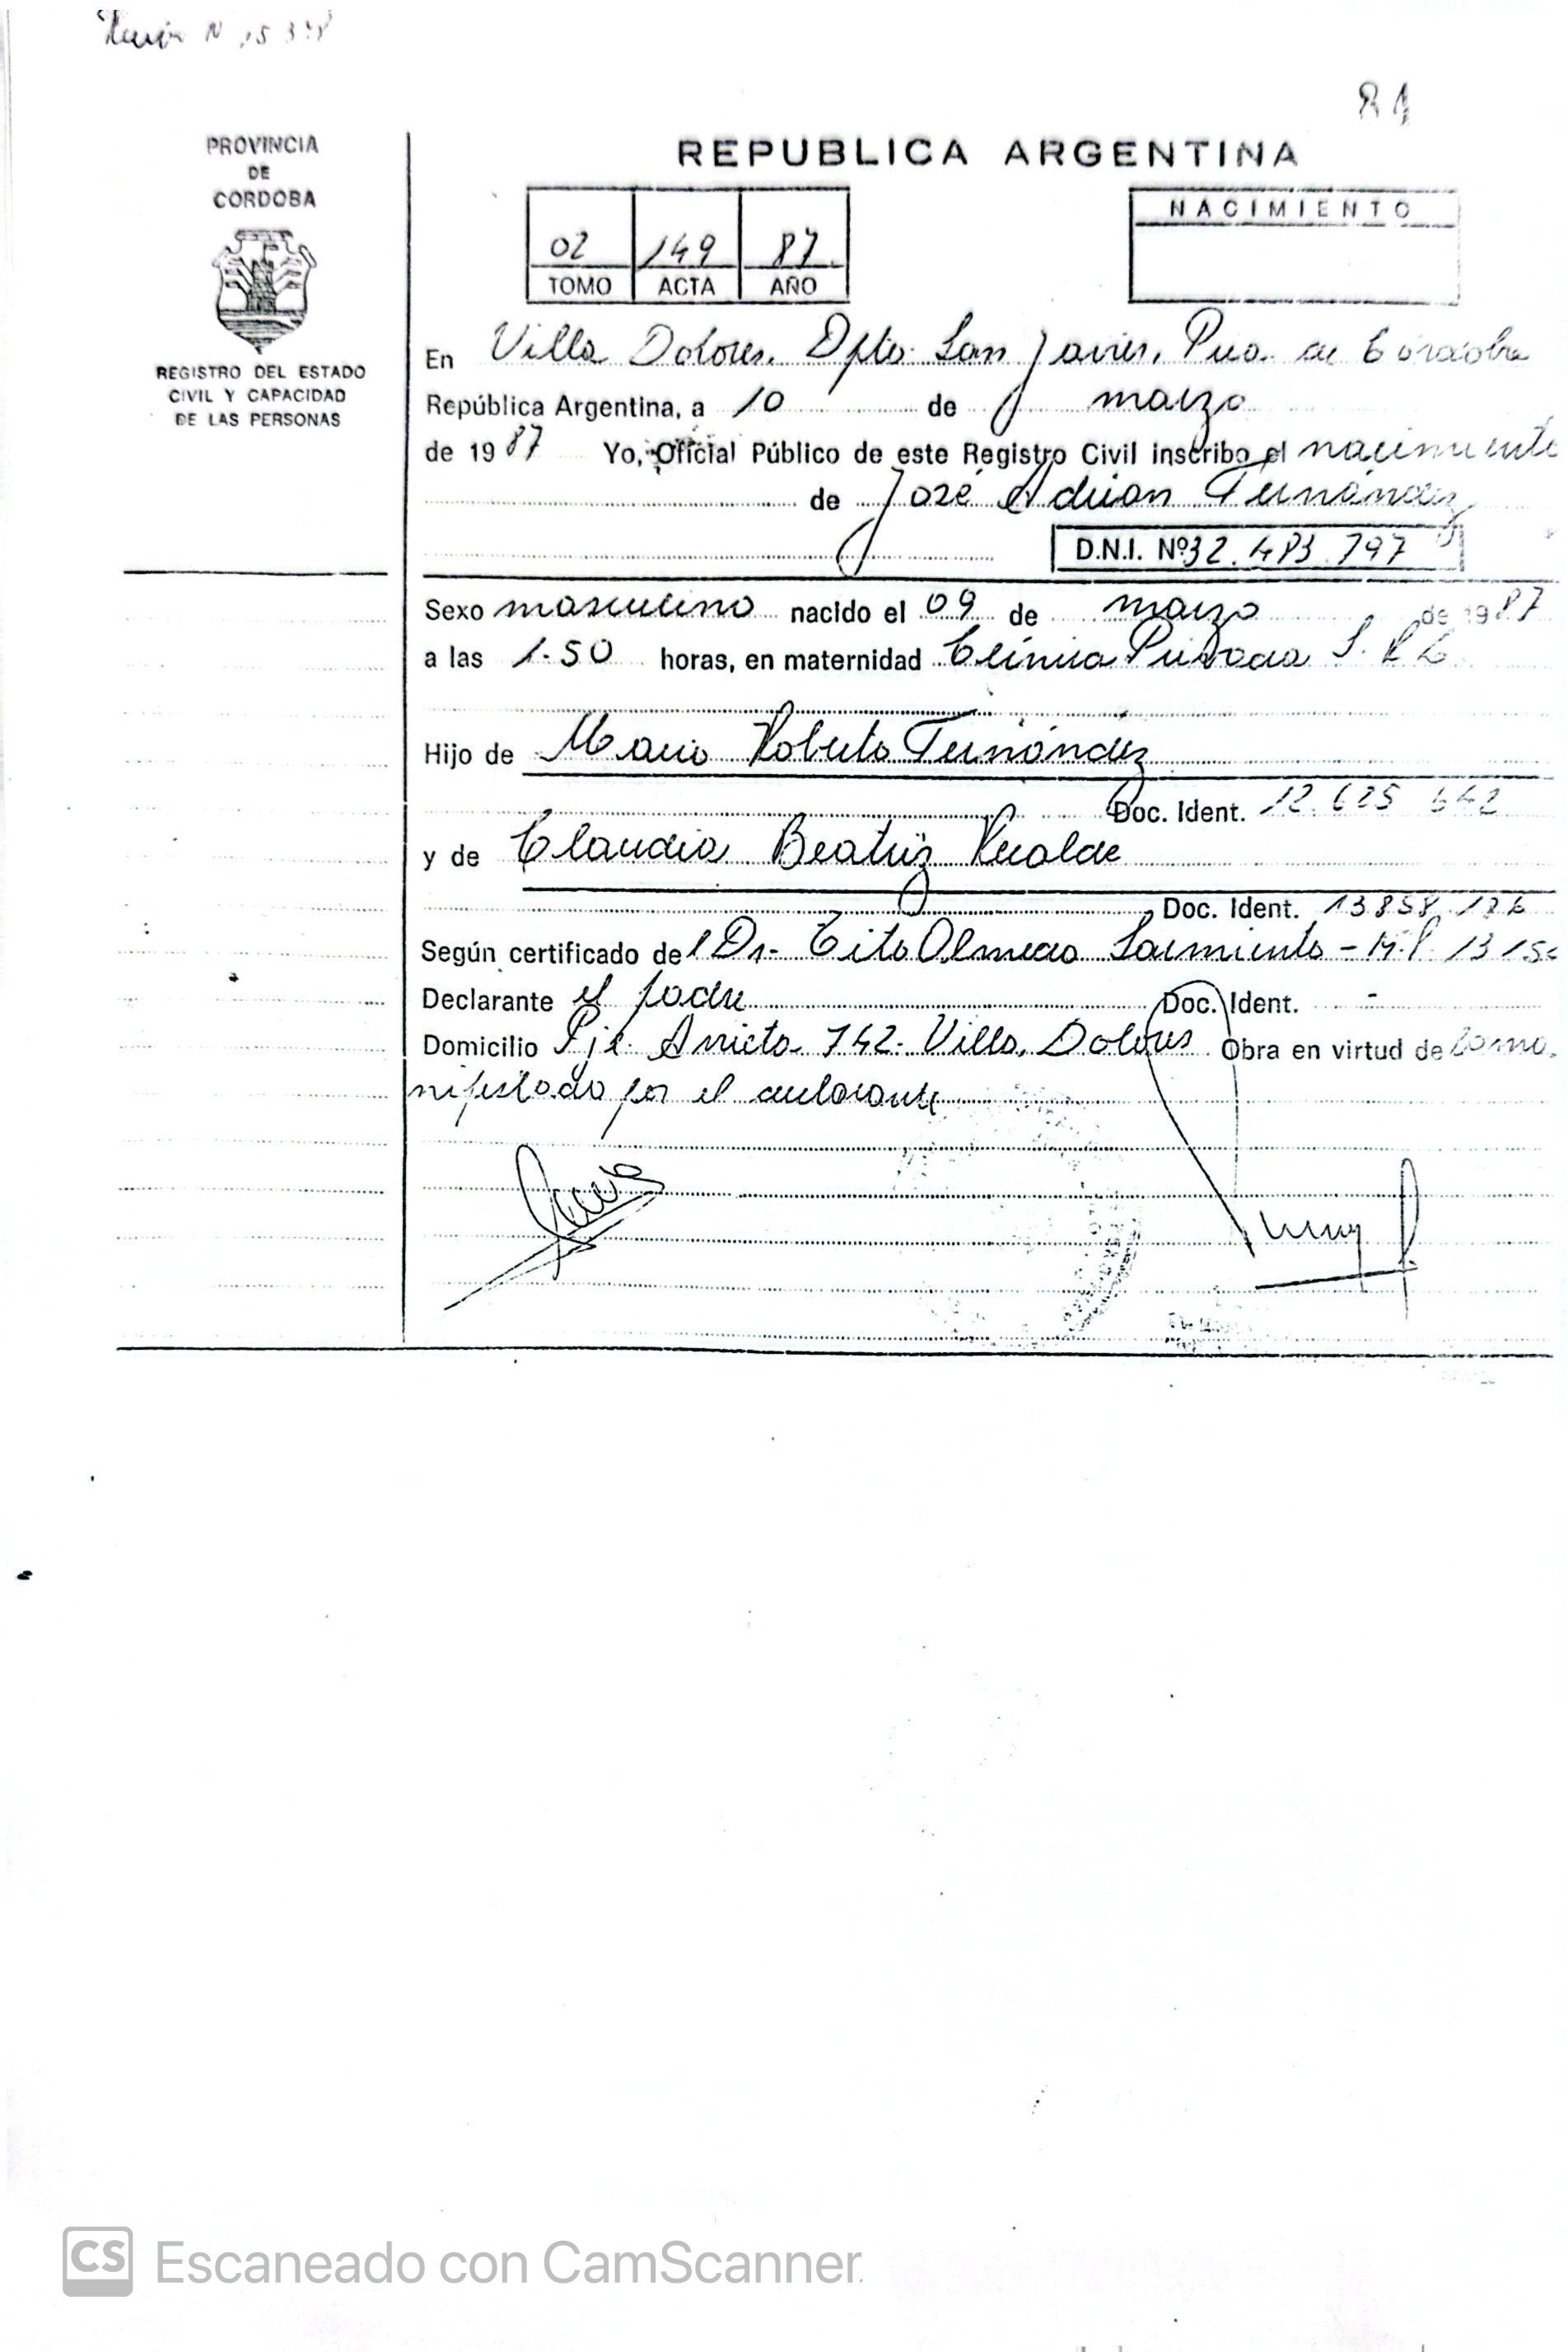 84
PROVINCIA
DE
CORDOBA
REGISTRO DEL ESTADO
CIVIL Y CAPACIDAD
DE LAS PERSONAS
REPUBLICA ARGENTINA
02 149 87
TOMO ACTA AÑO
NACIMIENTO
En Villa Dolores. Dpto. San Javier. Pcia. de Córdoba
República Argentina, a 10 de marzo
de 1987 Yo, Oficial Público de este Registro Civil inscribo el nacimiento
de José Adrian Fernández
D.N.I. Nº 32.483.797
Sexo masculino nacido el 09 de marzo de 1987
a las 1.50 horas, en maternidad Clínica Privada S.R.L
Hijo de Mario Roberto Fernández
Doc. Ident. 12.625 642
y de Claudia Beatriz
Doc. Ident. 13858
Según certificado del Dr. Tito Olmedo Sarmiento - M.P. 13
Declarante el padre Doc. Ident. -
Domicilio Pje. 742. Villa Dolores Obra en virtud de lo ma
nifestado por el declarante
CS Escaneado con CamScanner